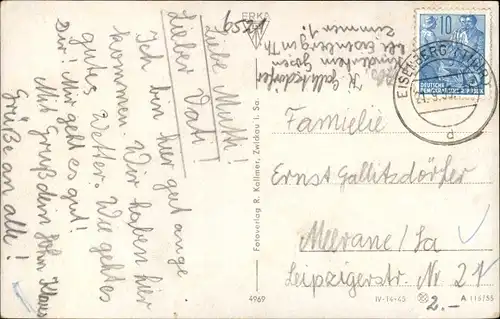 Liebe Mutti!
Lieber Vati!
Ich bin hier gut ange
kommen. Wir haben hier
gutes Wetter. Wie geht es
Dir! Mir geht es gut!
Mit Gruß dein Sohn Klaus
Grüße an alle!
ERKA
4969
Fotoverlag R. Kallmer, Zwickau i. Sa.
K. Gallitzdörfer
bei Eisenberg in Th
Zimmer 1.
10
DEUTSCHE
DEMOKRATISCHE REPUBLIK
EISENBERG (THÜR)
d
Familie
Ernst Gallitzdörfer
Meerane/Sa
Leipzigerstr. Nr 21
2.-
IV-14-45
A 115/55